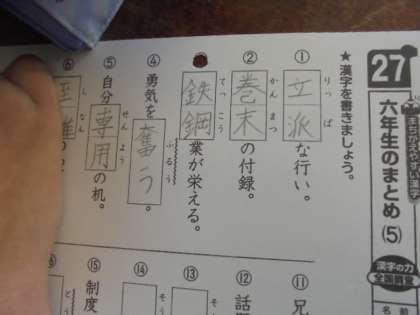 27
六年生のまとめ(5)
漢字の力
全国調査
名前
★漢字を書きましょう。
① 立派な行い。
りっぱ
② 巻末の付録。
かんまつ
鉄鋼業が栄える。
てっこう
④ 勇気を奮う。
ふるう
⑤ 自分専用の机。
せんよう
⑥
しなん
⑪ 兄
⑫
⑬
⑭
⑮ 制度